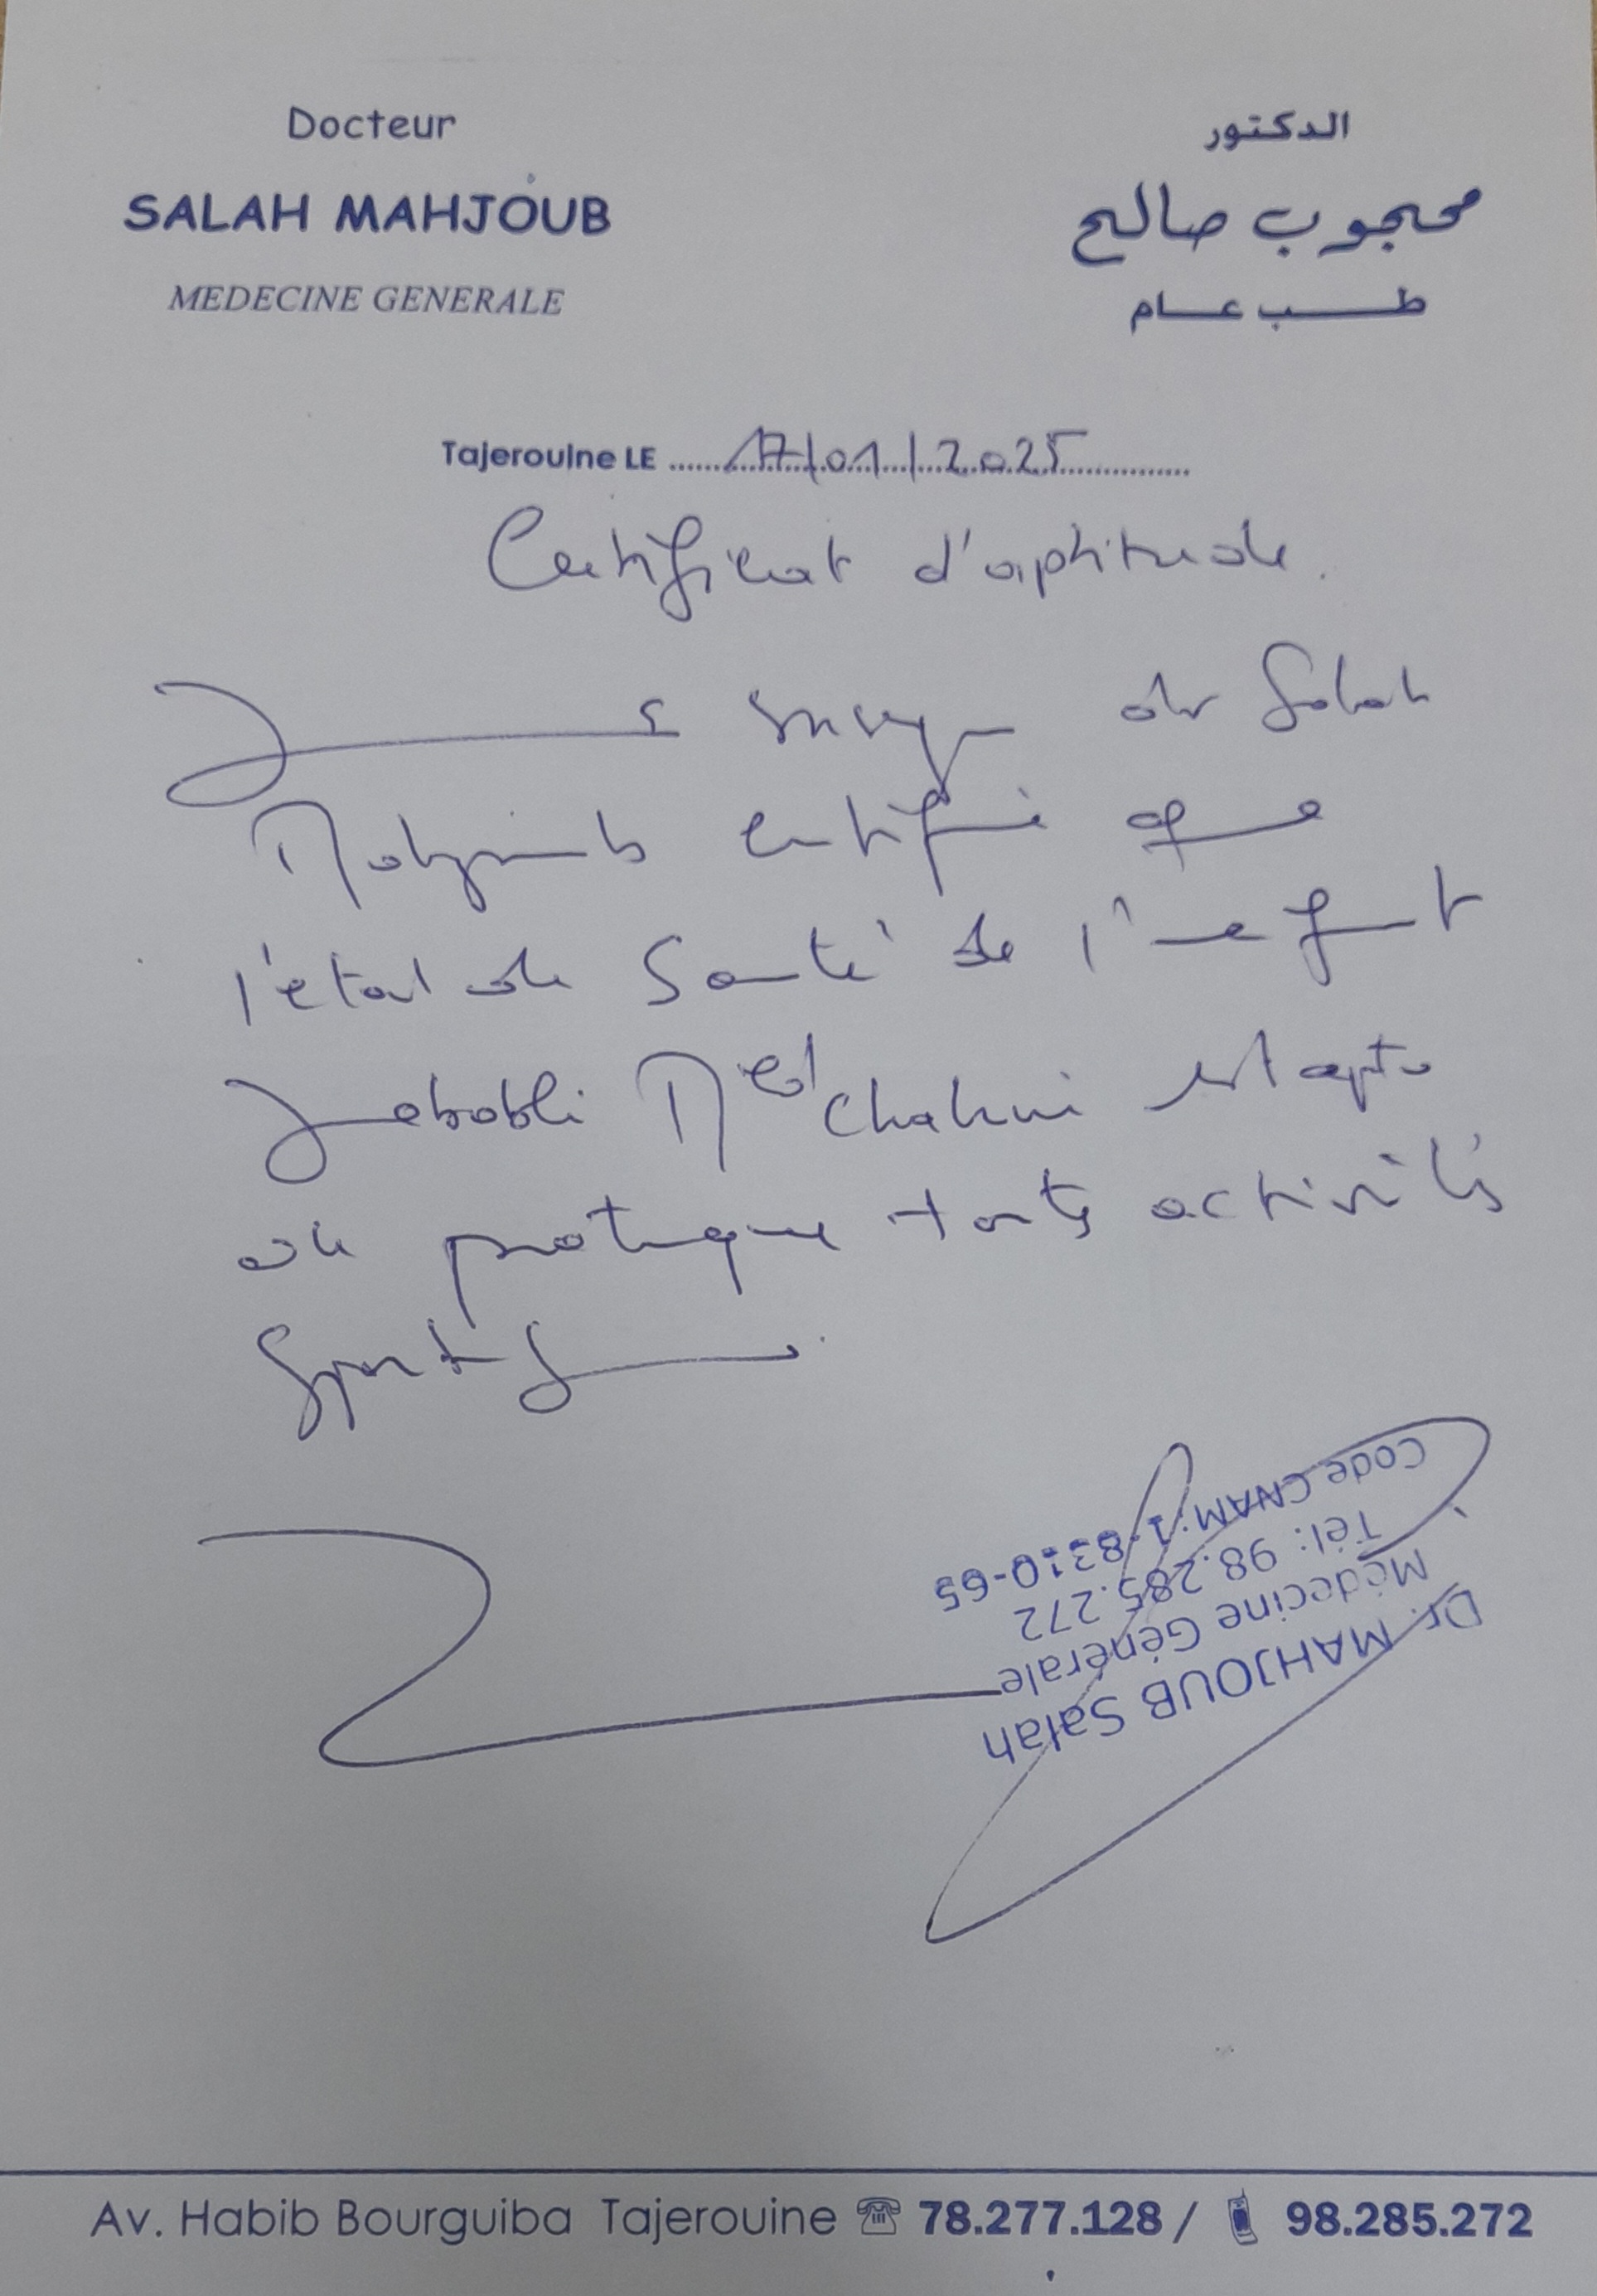 Docteur
SALAH MAHJOUB
MEDECINE GENERALE
الدكتور
محجوب صالح
طب عام
Tajerouine LE 17/01/2025
Certificat d'aptitude.
Je soussigné dr Salah
Mahjoub certifie que
l'état de Santé de l'enfant
Jebabli Med Chahin est apte
de pratiquer toute activités
Sportif
Dr. MAHJOUB Salah
Médecine Générale
Tél: 98.285.272
Code CNAM: 1-8310-65
Av. Habib Bourguiba Tajerouine 78.277.128 / 98.285.272